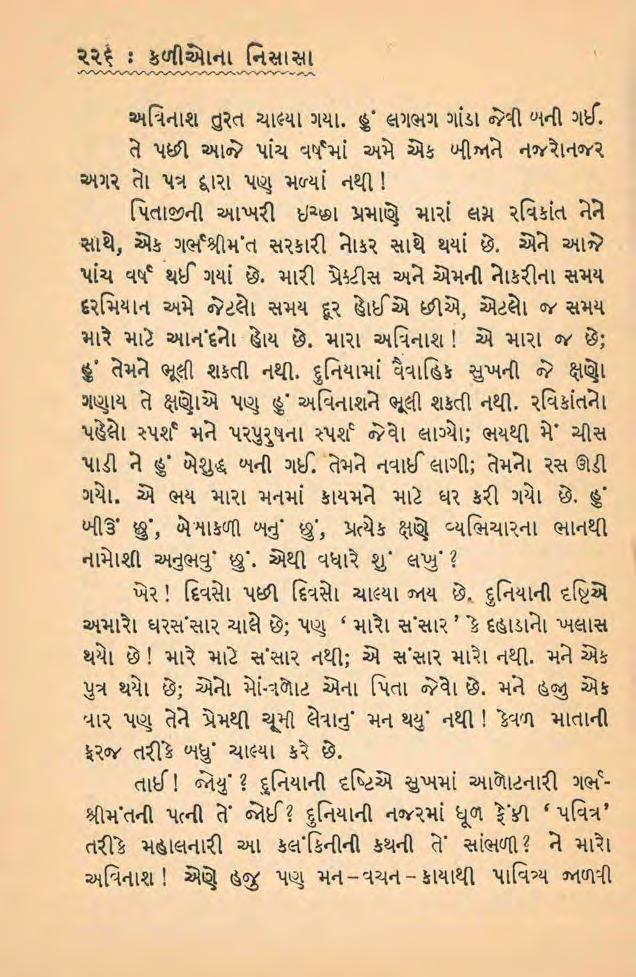 ૨૨૬ : કળીઓના નિસાસા
અવિનાશ તુરત ચાલ્યા ગયા. હું લગભગ ગાંડા જેવી બની ગઈ.
તે પછી આજે પાંચ વર્ષમાં અમે એક બીજાને નજરોનજર
અગર તો પત્ર દ્વારા પણ મળ્યાં નથી !
પિતાજીની આખરી ઇચ્છા પ્રમાણે મારાં લગ્ન રવિકાંત નેને
સાથે, એક ગર્ભશ્રીમંત સરકારી નોકર સાથે થયાં છે. એને આજે
પાંચ વર્ષ થઈ ગયાં છે. મારી પ્રેક્ટીસ અને એમની નોકરીના સમય
દરમિયાન અમે જેટલો સમય દૂર હોઈએ છીએ, એટલો જ સમય
મારે માટે આનંદનો હોય છે. મારા અવિનાશ ! એ મારા જ છે;
હું તેમને ભૂલી શકતી નથી. દુનિયામાં વૈવાહિક સુખની જે ક્ષણો
ગણાય તે ક્ષણોએ પણ હું અવિનાશને ભૂલી શકતી નથી. રવિકાંતનો
પહેલો સ્પર્શ મને પરપુરુષના સ્પર્શ જેવો લાગ્યો; ભયથી મેં ચીસ
પાડી ને હું બેશુદ્ધ બની ગઈ. તેમને નવાઈ લાગી; તેમનો રસ ઊડી
ગયો. એ ભય મારા મનમાં કાયમને માટે ઘર કરી ગયો છે. હું
બીઉં છું, બેબાકળી બનું છું, પ્રત્યેક ક્ષણે વ્યભિચારના ભાનથી
નામોશી અનુભવું છું. એથી વધારે શું લખું ?
ખેર ! દિવસો પછી દિવસો ચાલ્યા જાય છે. દુનિયાની દૃષ્ટિએ
અમારો ઘરસંસાર ચાલે છે; પણ ‘ મારો સંસાર ’ કે દહાડાનો ખલાસ
થયો છે ! મારે માટે સંસાર નથી; એ સંસાર મારો નથી. મને એક
પુત્ર થયો છે; એનો મોં-ત્રળોટ એના પિતા જેવો છે. મને હજુ એક
વાર પણ તેને પ્રેમથી ચૂમી લેવાનું મન થયું નથી ! કેવળ માતાની
ફરજ તરીકે બધું ચાલ્યા કરે છે.
તાઈ ! જોયું ? દુનિયાની દષ્ટિએ સુખમાં આળોટનારી ગર્ભ-
શ્રીમંતની પત્ની તેં જોઈ ? દુનિયાની નજરમાં ધૂળ ફેંકી ‘ પવિત્ર’
તરીકે મહાલનારી આ કલંકિનીની કથની તેં સાંભળી ? ને મારો
અવિનાશ ! એણે હજુ પણ મન – વચન – કાયાથી પાવિત્ર્ય જાળવી